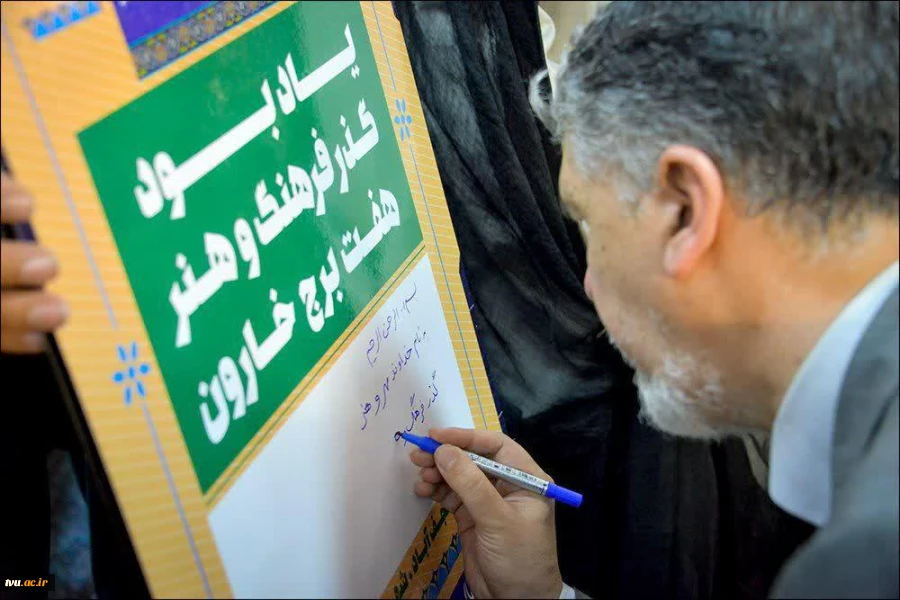 یادبود
گذر فرهنگ و هنر
هفت برج خارون
بسم الله الرحمن الرحیم
به نام خداوند مهر و هنر
گذر فرهنگ
tvu.ac.ir